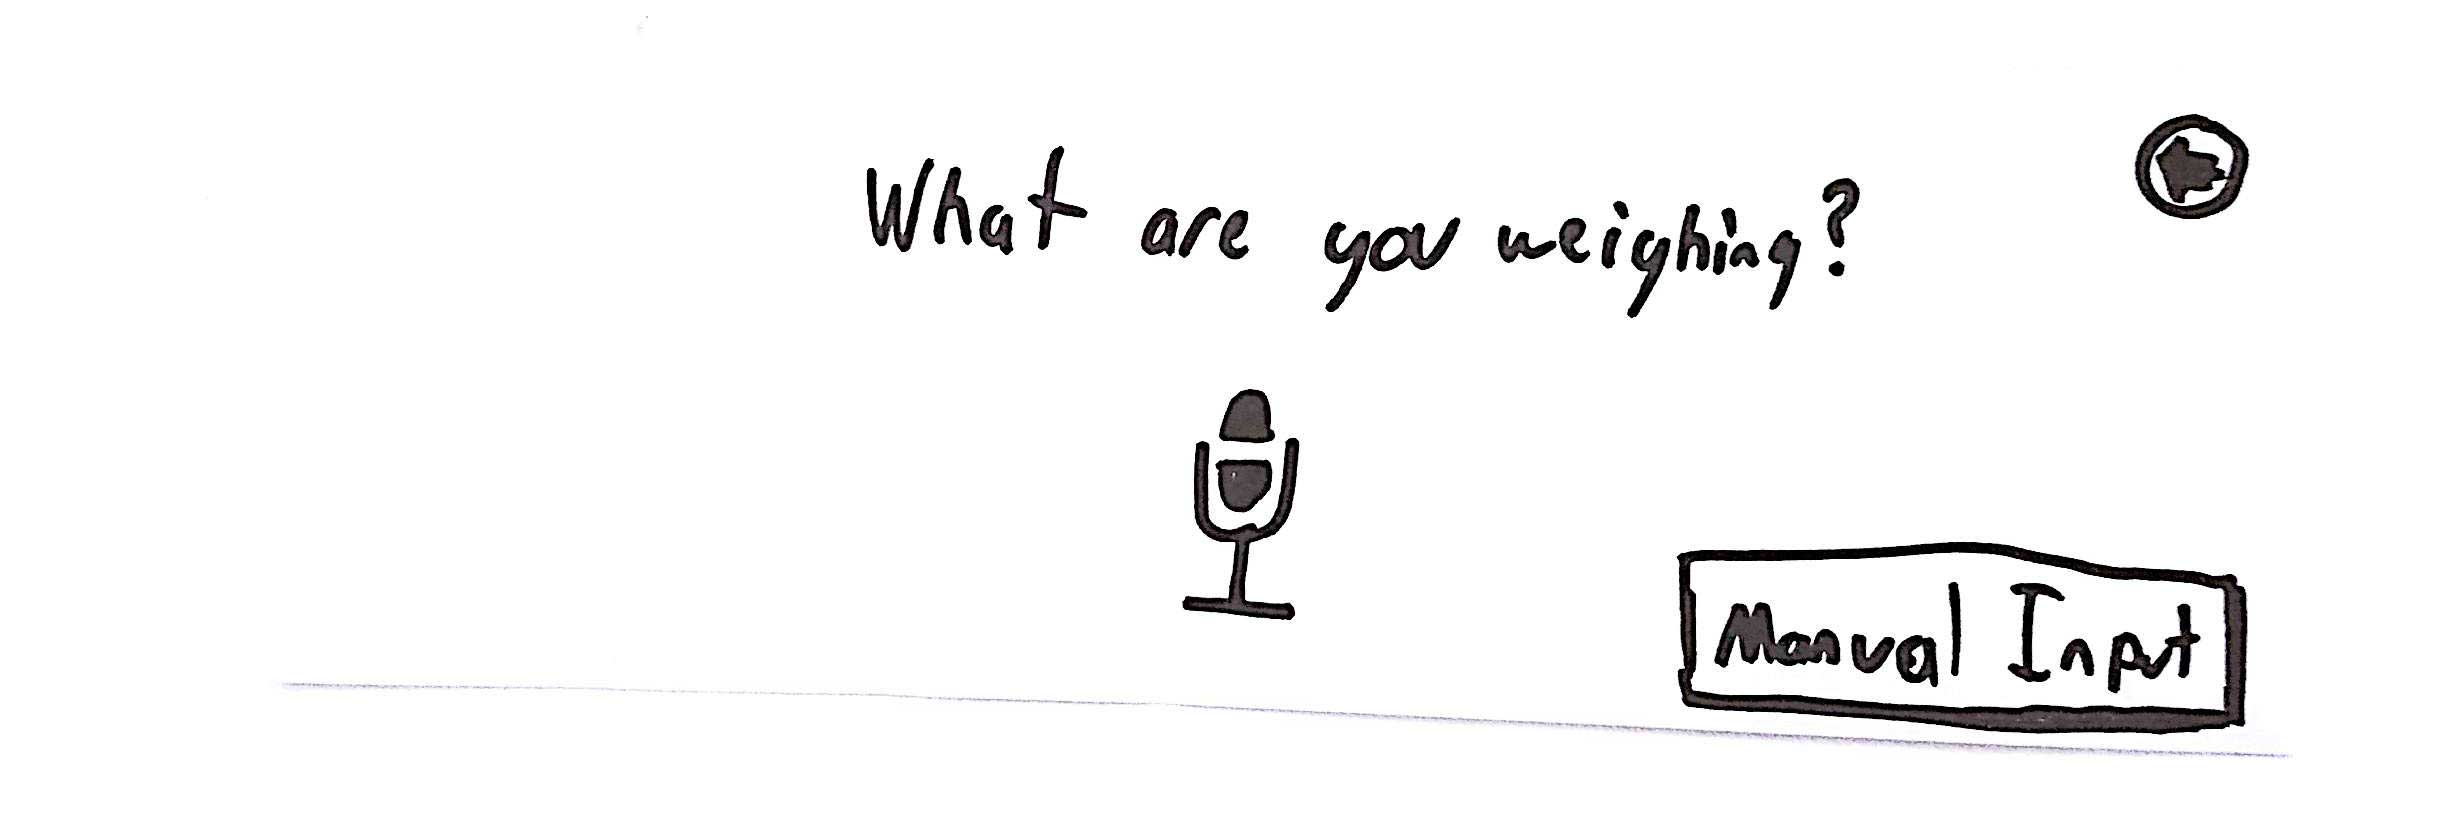 What are you weighing?
Manual Input